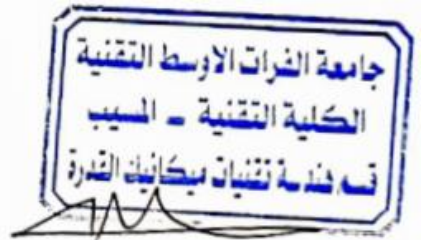 جامعة الفرات الاوسط التقنية
الكلية التقنية - المسيب
قسم هندسة تقنيات ميكانيك القدرة